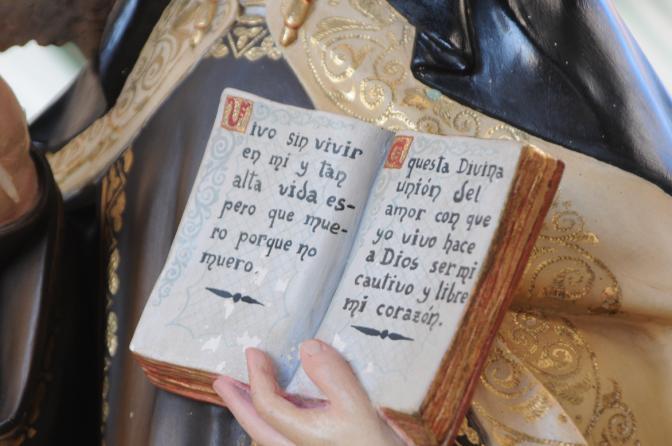 Vivo sin vivir
en mi y tan
alta vida es-
pero que mue-
ro porque no
muero.
aquesta Divina
unión del
amor con que
yo vivo hace
a Dios ser mi
cautivo y libre
mi corazón.